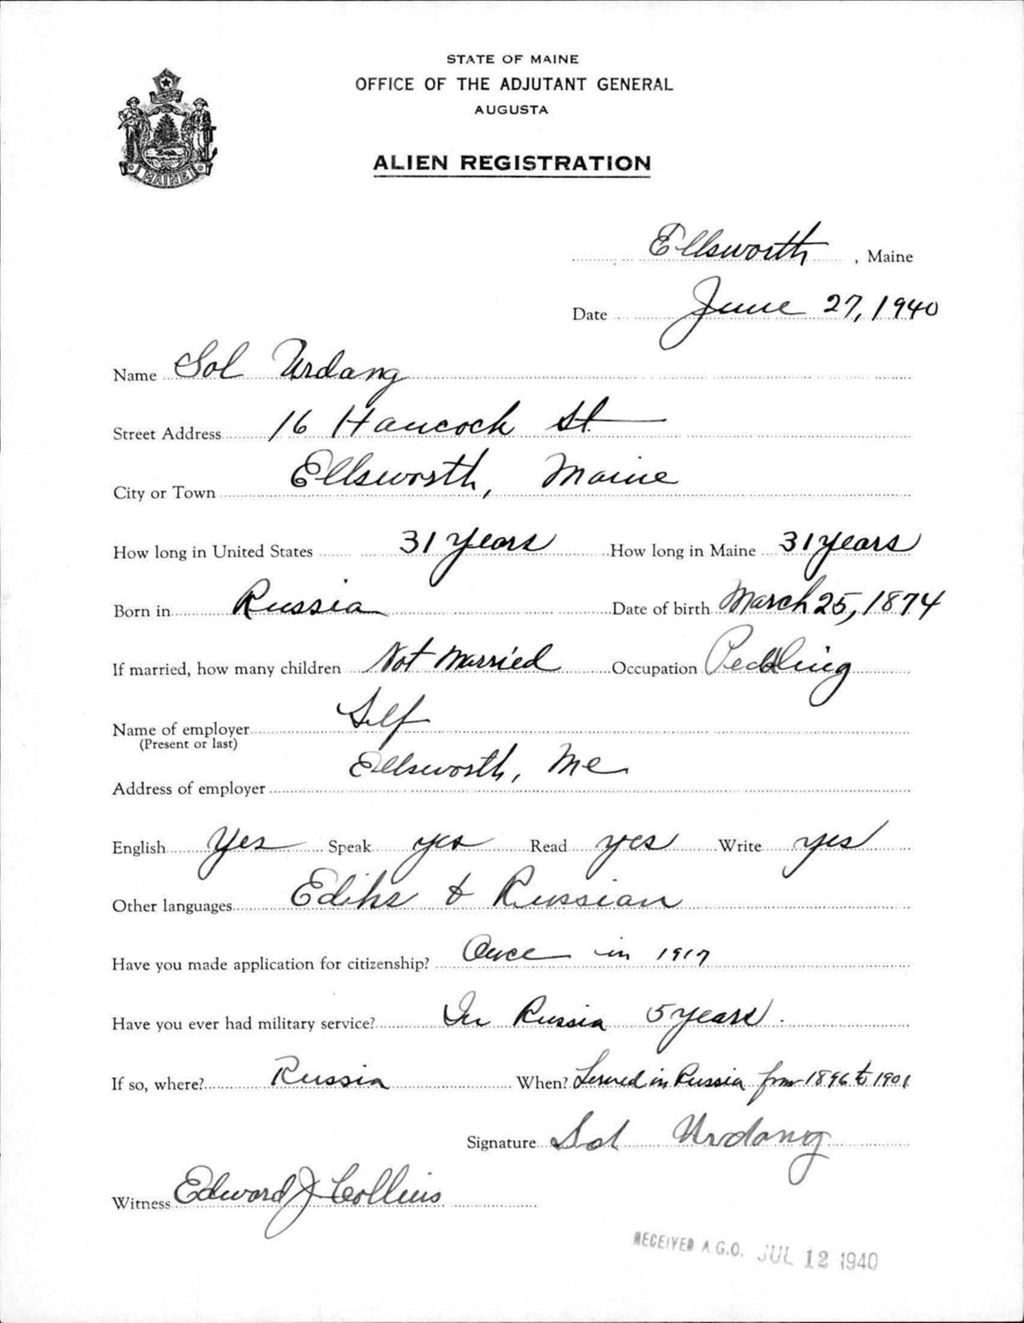 STATE OF MAINE
OFFICE OF THE ADJUTANT GENERAL
AUGUSTA
ALIEN REGISTRATION
MAINE
Ellsworth, Maine
Date June 27, 1940
Name Sol Urdang
Street Address 16 Hancock St
City or Town Ellsworth, Maine
How long in United States 31 years How long in Maine 31 years
Born in Russia Date of birth March 25, 1874
If married, how many children Not Married Occupation Peddling
Name of employer Self
(Present or last)
Address of employer Ellsworth, Me
English Yes Speak yes Read yes Write yes
Other languages Edihs & Russian
Have you made application for citizenship? Once in 1917
Have you ever had military service? In Russia 5 years.
If so, where? Russia When? Served in Russia from 1896 to 1901
Signature Sol Urdang
Witness Edward J Collins
RECEIVED A.G.O. JUL 12 1940